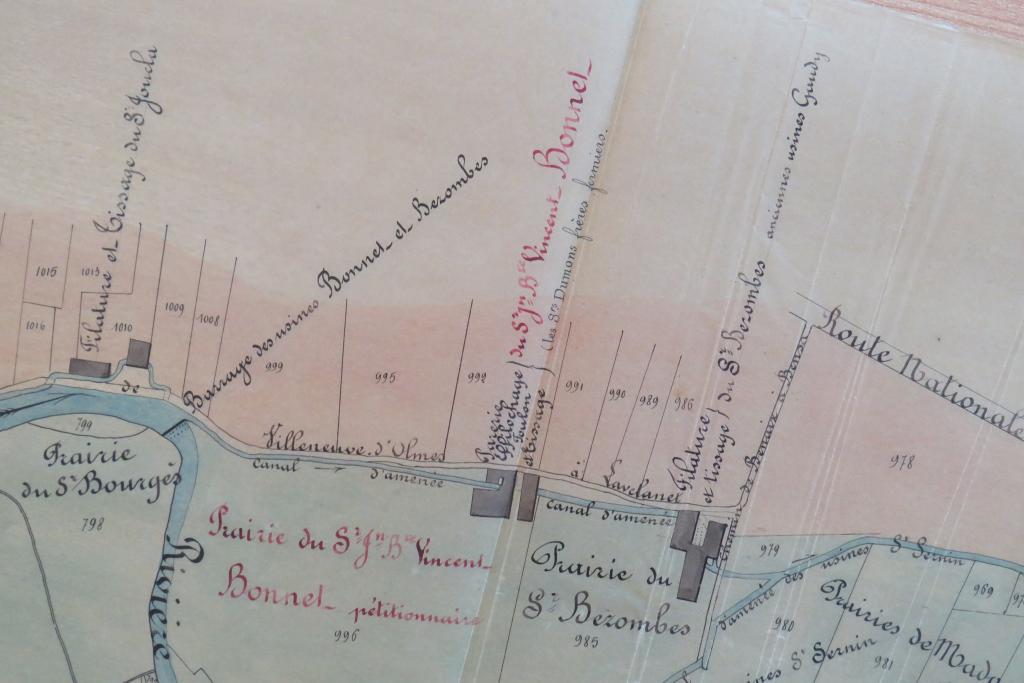 Filature et Tissage du Sr Jouclu
Barrage des usines Bonnet et Bezombes
Effilochage
Foulon
et Tissage
du Sr Jn Bte Vincent Bonnet
(les Srs Dumons frères fermiers.
Filature
et tissage
du Sr Bezombes anciennes usines Gaudy
Route Nationale
1015
1013
1016
1010
1009
1008
999
995
992
991
990
989
986
978
de Villeneuve-d'Olmes à Lavelanet
799
Prairie
du Sr Bourges
798
Canal d'amenée
Canal d'amenée
Rivière
Prairie du Sr Jn Bte Vincent
Bonnet pétitionnaire
996
Prairie du
Sr Bezombes
985
Chemin de
979
d'amenée des usines St Sernin
969
97
980
Prairies de Mada
981
ines St Sernin